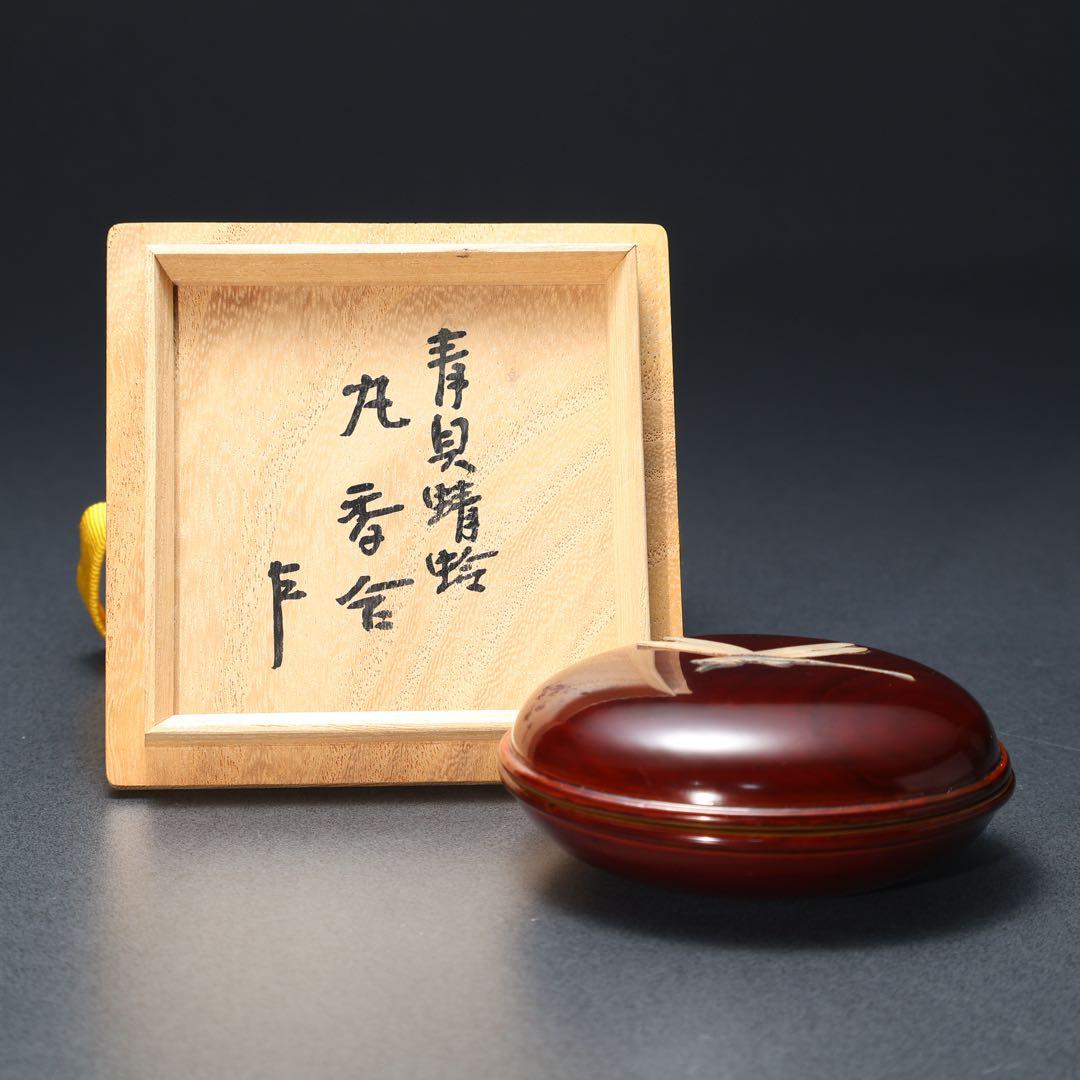 青貝蜻蛉
丸香合